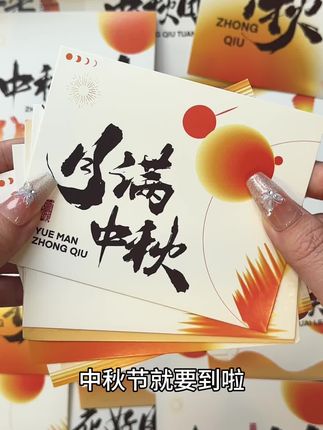 中秋
ZHONG QIU TUAN
ZHONG
QIU
月满
中秋
YUE MAN
ZHONG QIU
中秋节就要到啦